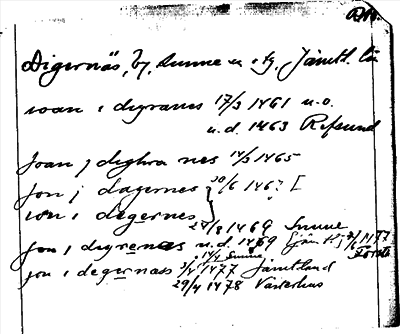 Digernäs, by, Sunne sn o. tg, Jämtl. län
ioan i digranæs 17/3 1461 u.o.
u.d. 1463 Refsund
Joan j dighra nes 14/3 1465
Jon j dagernes 20/6 146? [
ion i degernes
24/8 1469 Sunne
Jon i digrenæs u.d. 1469
14/4 Sunne
jon i degernæs 3/4 1477 Jämtland
29/4 1478 Västerhus